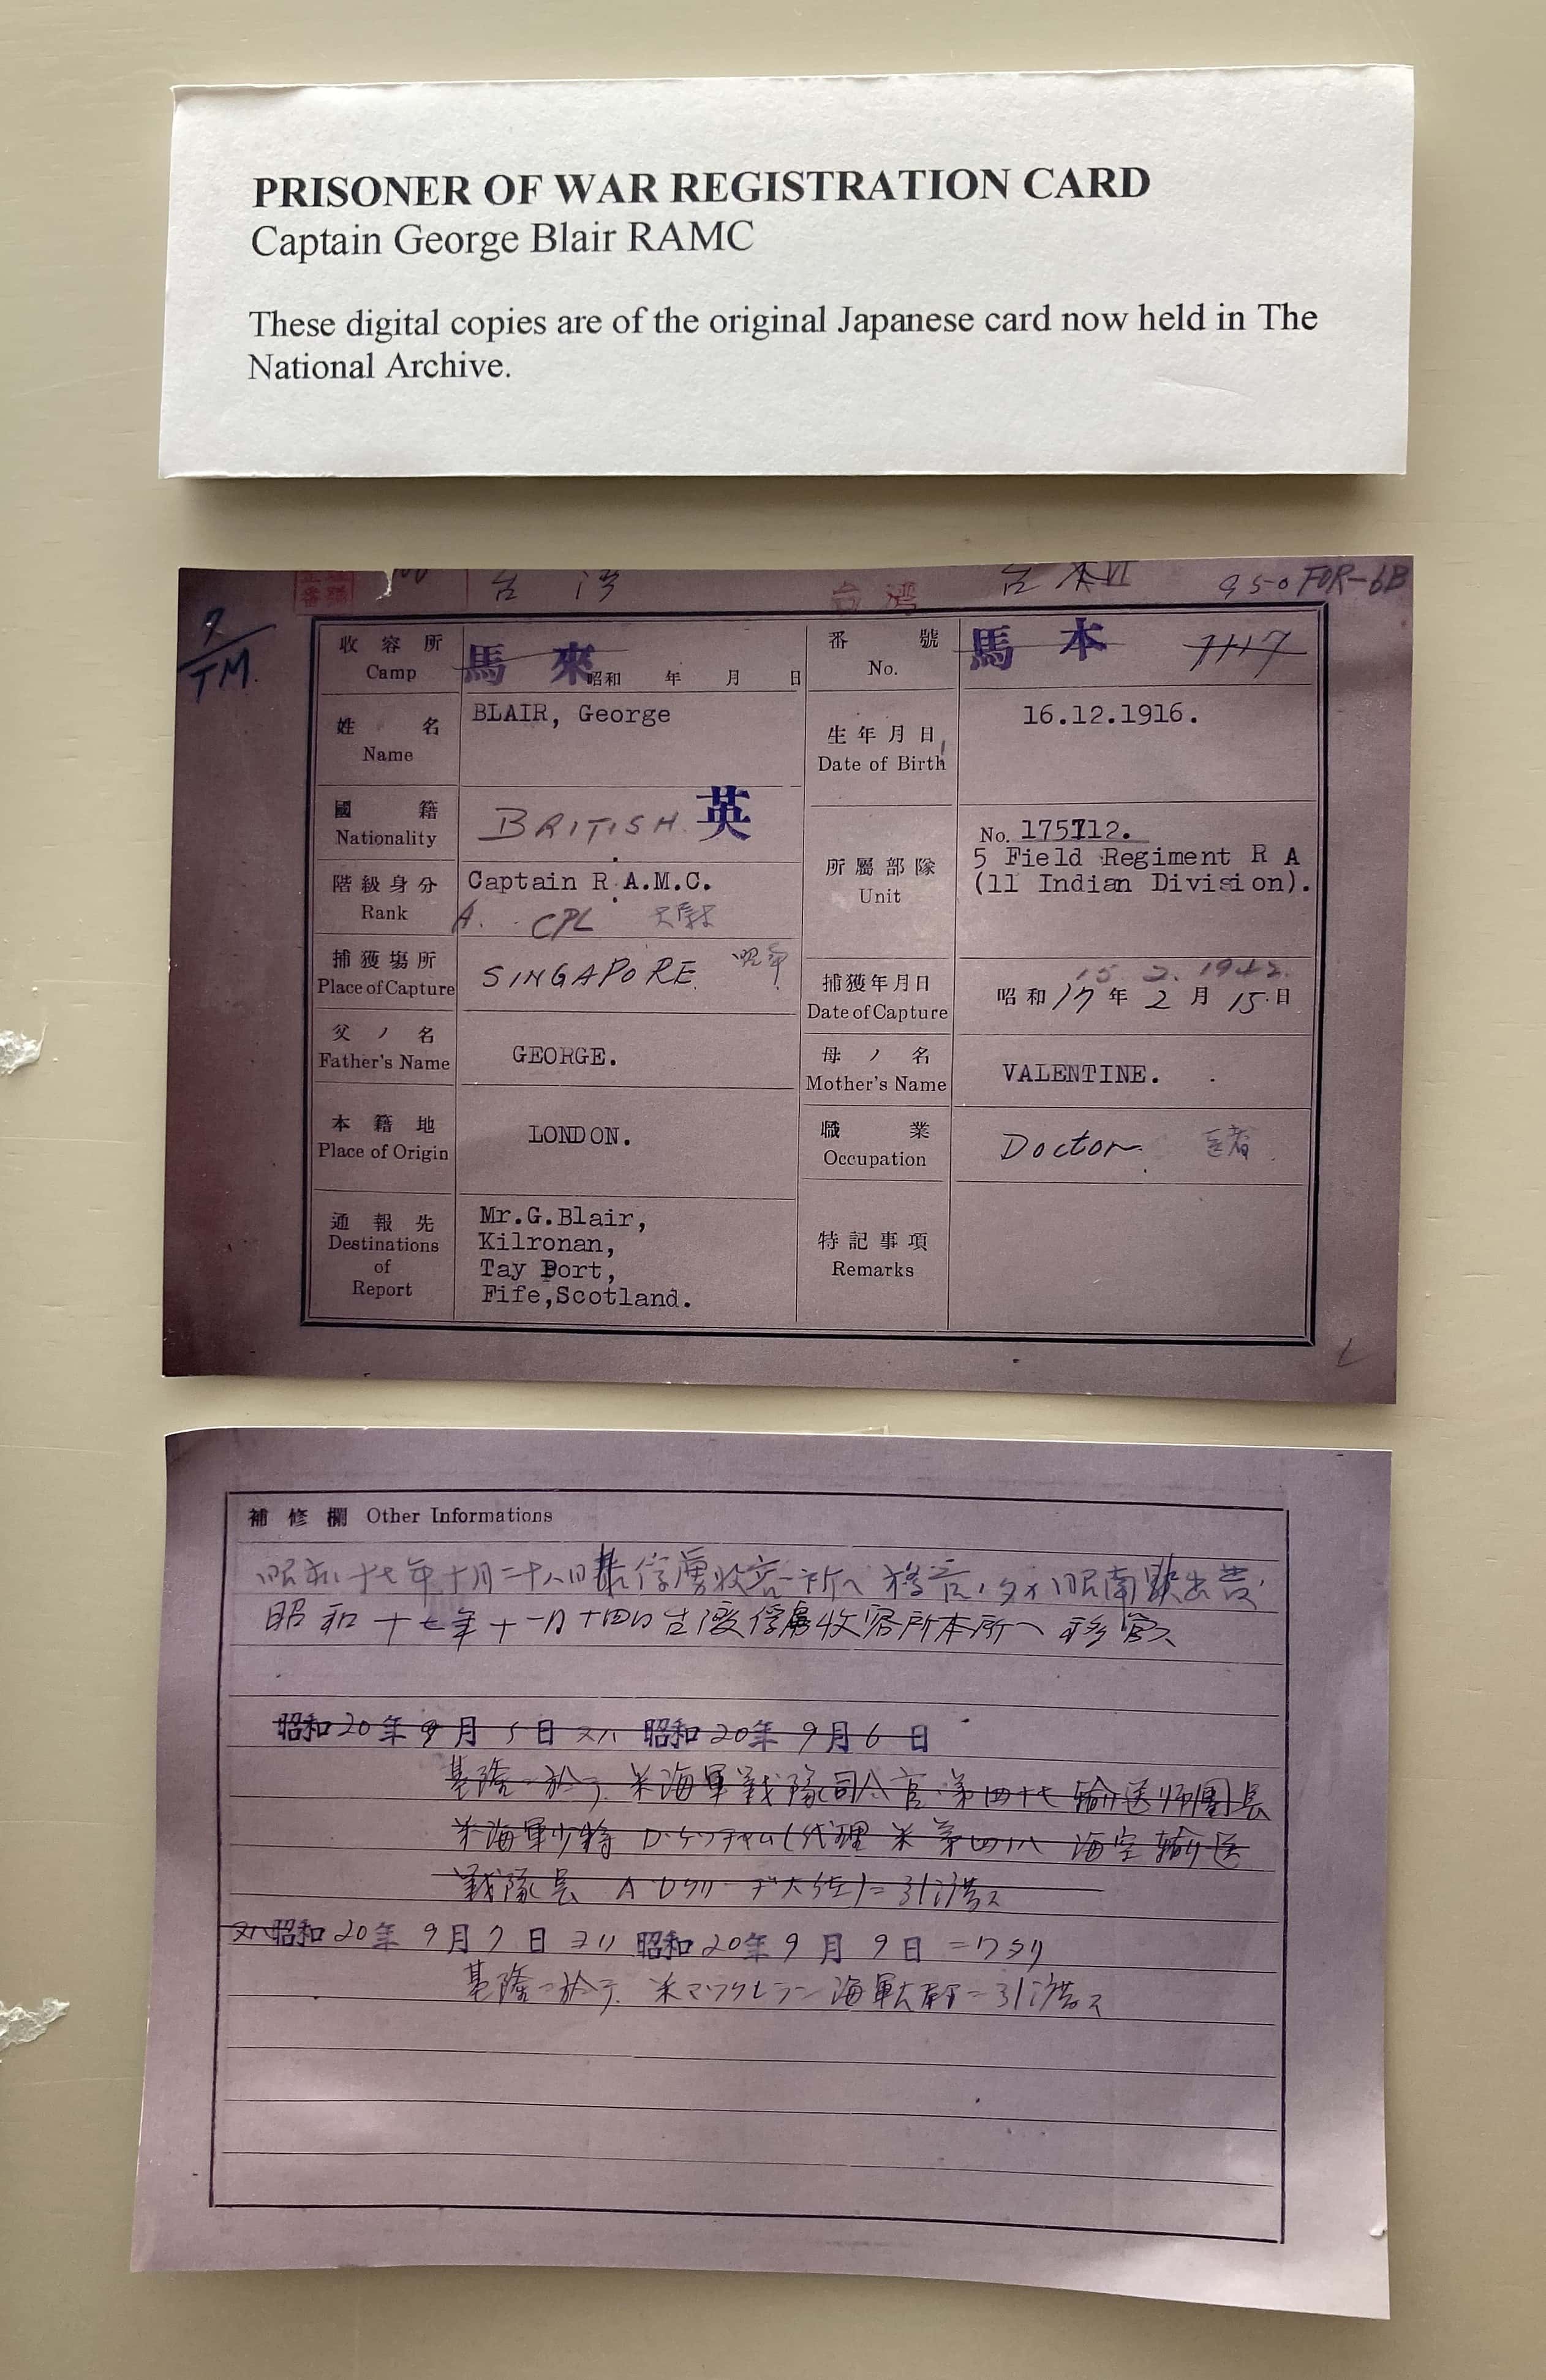 PRISONER OF WAR REGISTRATION CARD
Captain George Blair RAMC
These digital copies are of the original Japanese card now held in The
National Archive.
台 湾
台 湾
台 本 VI
950 FOR-6B
7/TM.
收容所 Camp
馬 來 昭和 年 月 日
番號 No.
馬 本 7117
姓名 Name
BLAIR, George
生年月日 Date of Birth
16.12.1916.
國籍 Nationality
BRITISH. 英
階級身分 Rank
Captain R.A.M.C.
A. CPL
所屬部隊 Unit
No. 175712.
5 Field Regiment R A
(11 Indian Division).
捕獲場所 Place of Capture
SINGAPORE
捕獲年月日 Date of Capture
15. 2. 1942.
昭和 17 年 2 月 15 日
父ノ名 Father's Name
GEORGE.
母ノ名 Mother's Name
VALENTINE.
本籍地 Place of Origin
LONDON.
職業 Occupation
Doctor 医者
通報先 Destinations of Report
Mr.G.Blair,
Kilronan,
Tay Port,
Fife,Scotland.
特記事項 Remarks
補修欄 Other Informations
昭和十七年十月二十八日 俘虜收容所へ移 昭南 出
昭和十七年十一月十四日 俘虜收容所本所へ移
昭和20年9月5日 又ハ 昭和20年9月6日
基隆ニ於テ 米海軍 戦隊司令官 第四十七輸送師團長
米海軍少将 代理 米第四十八 海 輸送
戦隊長 大佐 ニ引渡ス
又ハ昭和20年9月7日ヨリ昭和20年9月9日ニワタリ
基隆ニ於テ 米マックレラン海軍大尉ニ引渡ス